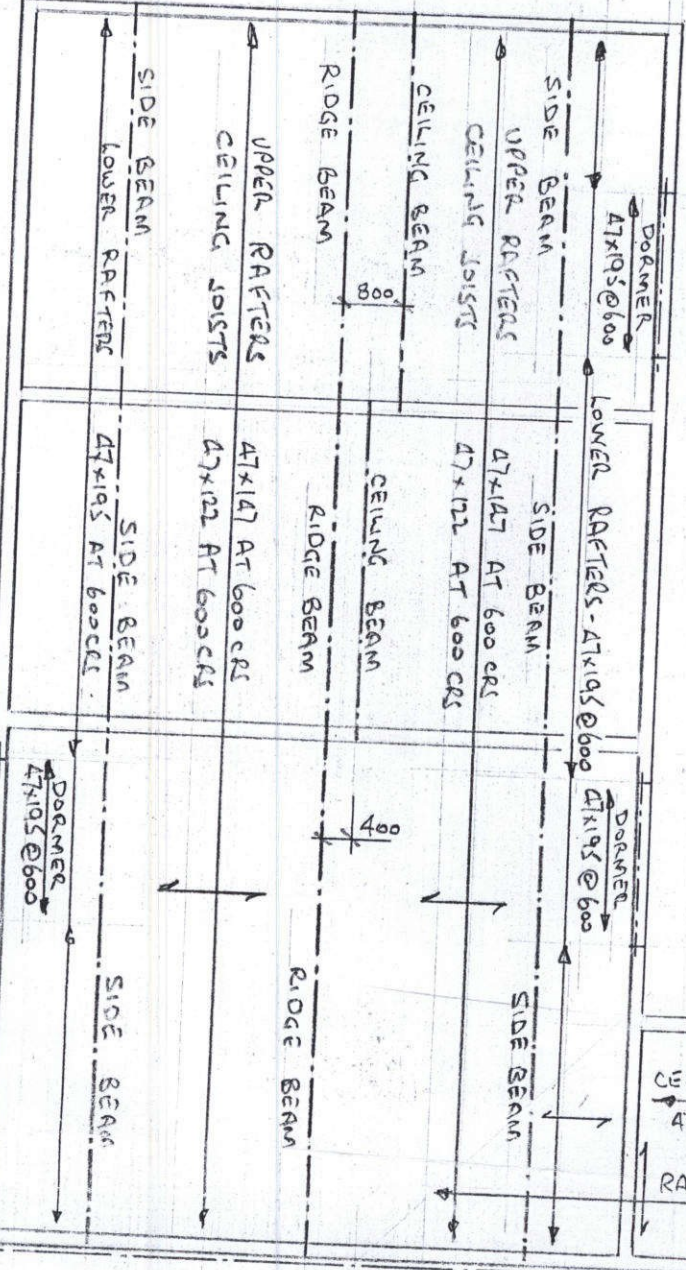 DORMER
47x195@600
LOWER RAFTERS - 47x195@600
DORMER
47x195@600
SIDE BEAM
SIDE BEAM
SIDE BEAM
UPPER RAFTERS 47x147 AT 600 CRS
CEILING JOISTS 47x122 AT 600 CRS
CEILING BEAM
CEILING BEAM
800
400
RIDGE BEAM
RIDGE BEAM
RIDGE BEAM
UPPER RAFTERS 47x147 AT 600 CRS
CEILING JOISTS 47x122 AT 600 CRS
SIDE BEAM
SIDE BEAM
SIDE BEAM
LOWER RAFTERS 47x195 AT 600 CRS.
DORMER
47x195@600
CE
4
RA